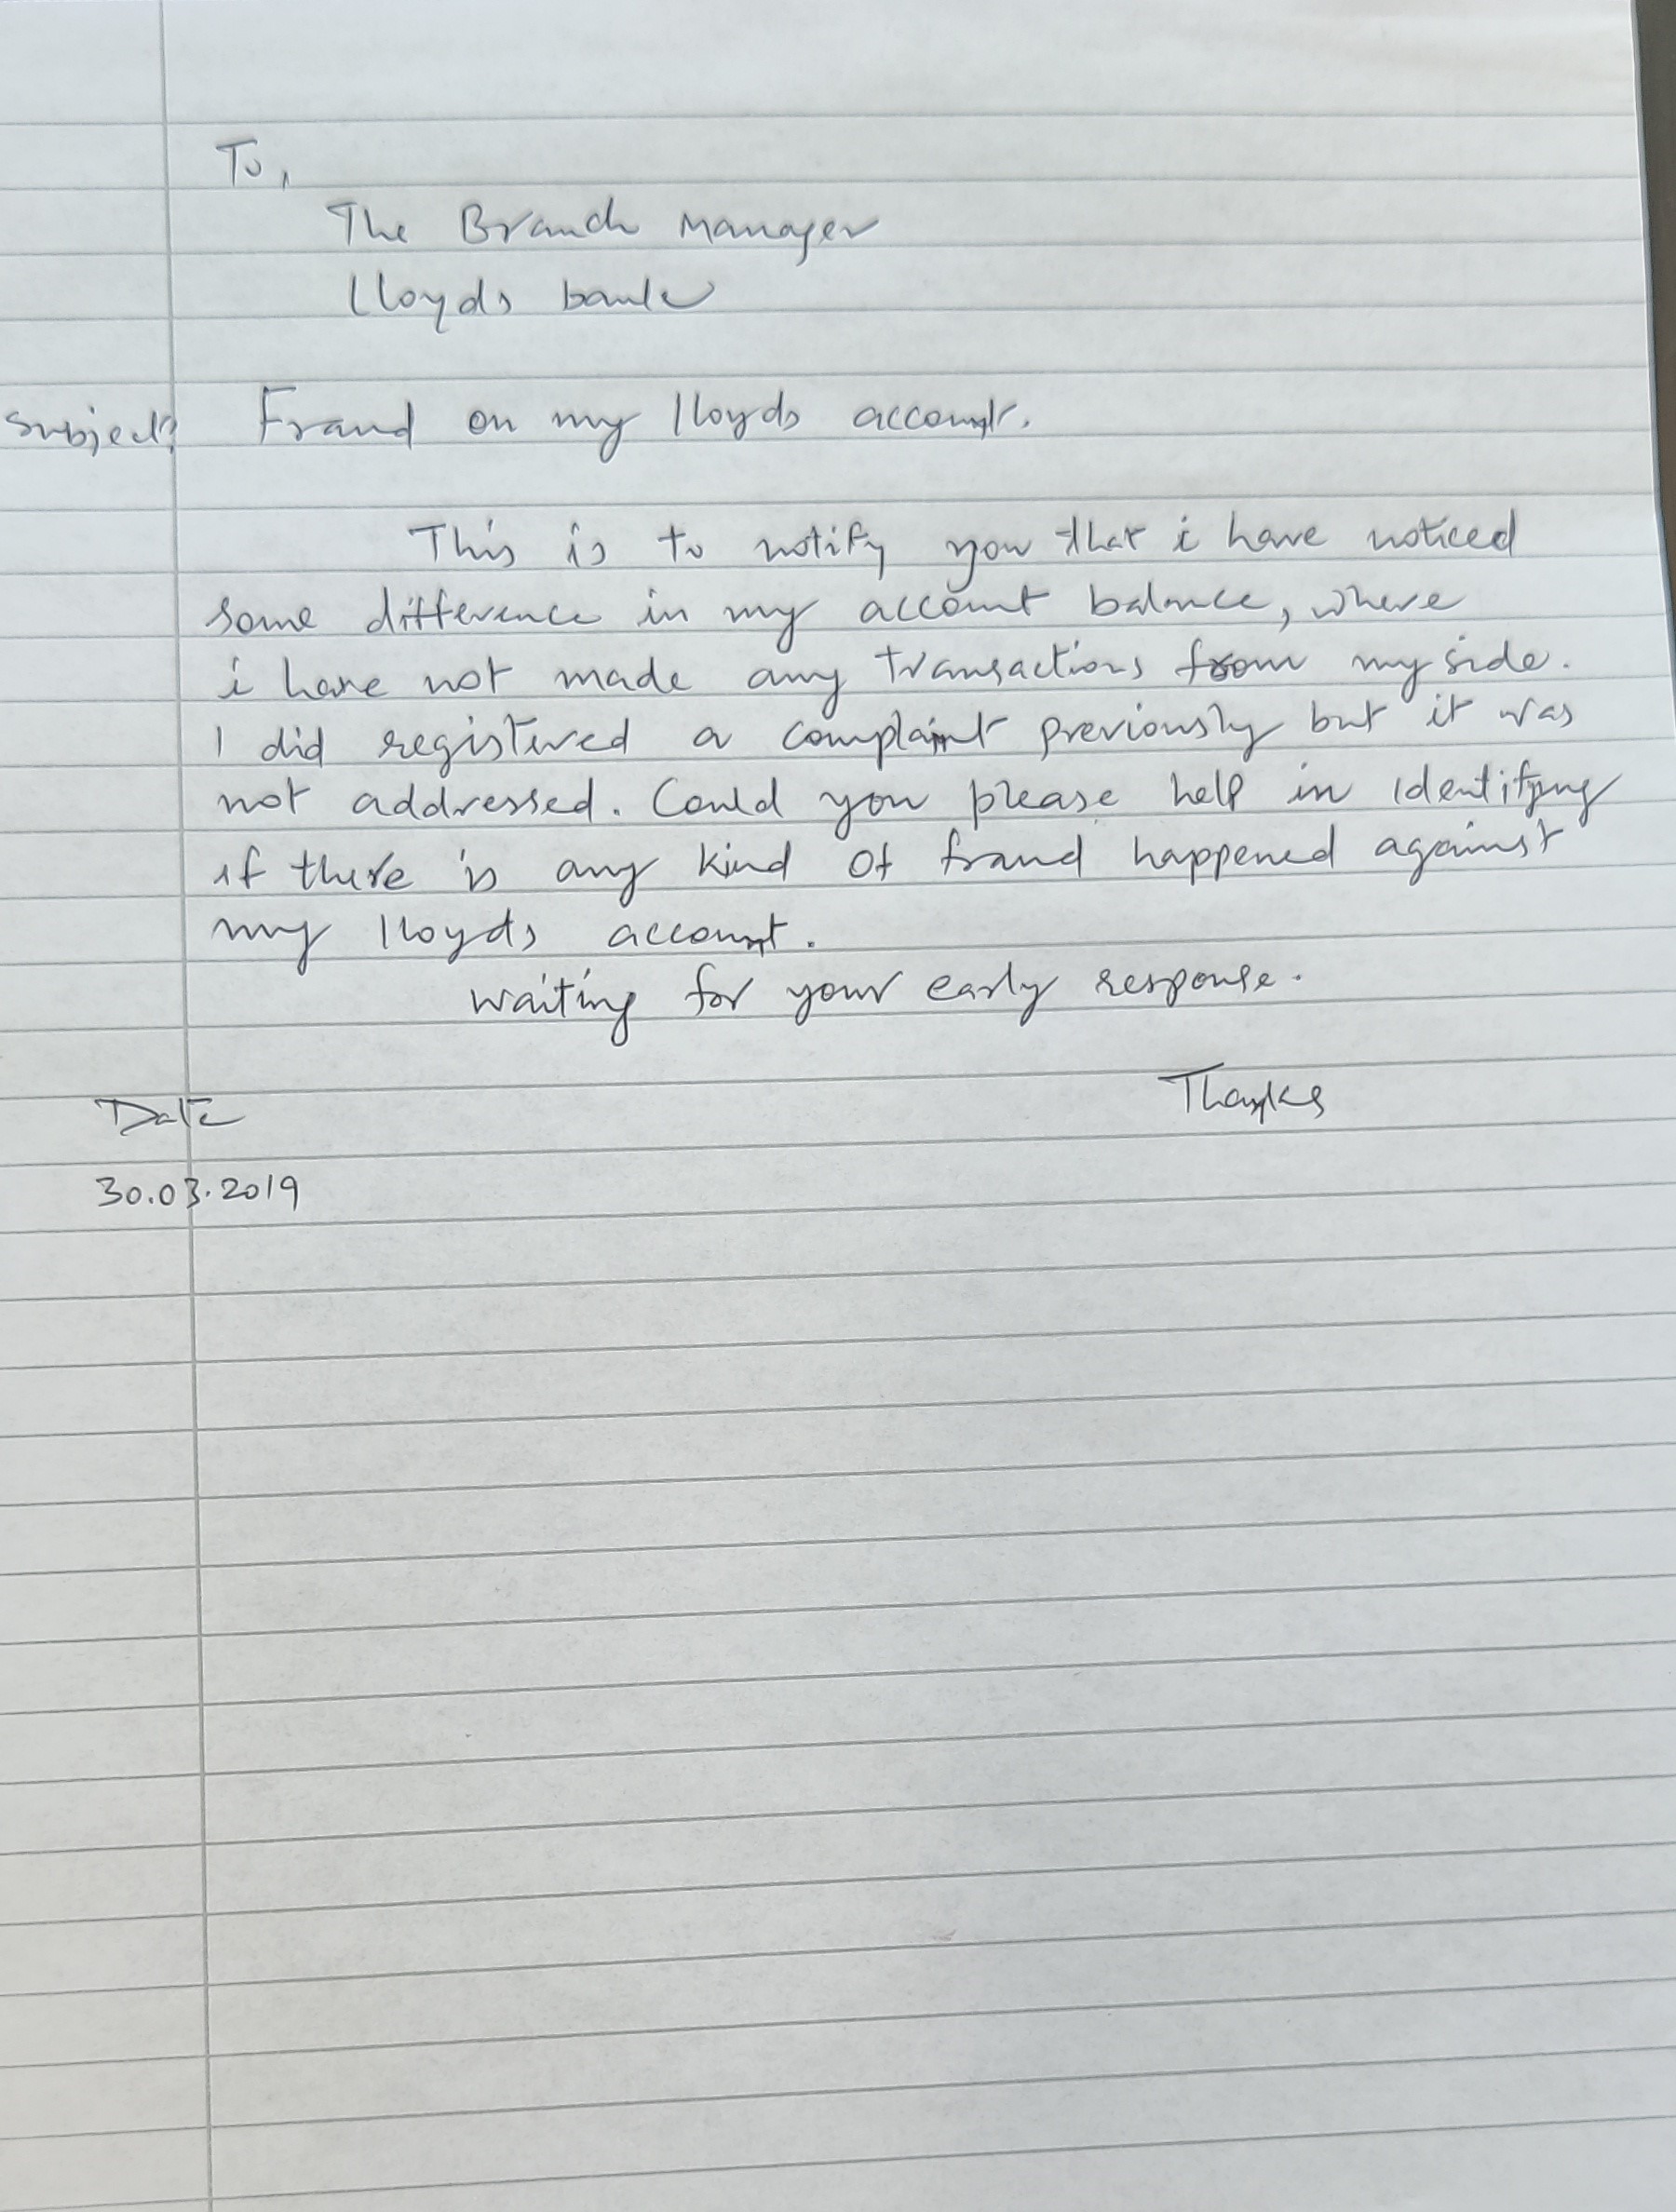 To,
The Branch Manager
Lloyds bank
Subject: Fraud on my lloyds account.
This is to notify you that i have noticed
some difference in my account balance, where
i have not made any transactions from my side.
I did registered a complaint previously but it was
not addressed. Could you please help in identifying
if there is any kind of fraud happened against
my lloyds account.
waiting for your early response.
Thanks
Date
30.03.2019